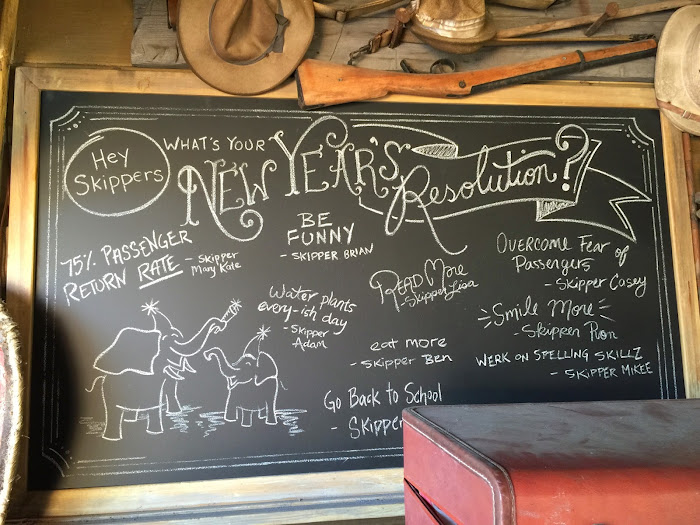 Hey
Skippers
WHAT'S YOUR
NEW YEAR'S
Resolution?
75% PASSENGER
RETURN RATE
- Skipper
Mary Kate
BE
FUNNY
- SKIPPER BRIAN
Water plants
every-ish day
- Skipper
Adam
READ More
- Skipper Lisa
OVERCOME Fear of
Passengers
- Skipper Casey
Smile More
- Skipper
eat more
- Skipper Ben
WERK ON SPELLING SKILLZ
- SKIPPER MIKEE
Go Back to School
- Skipper